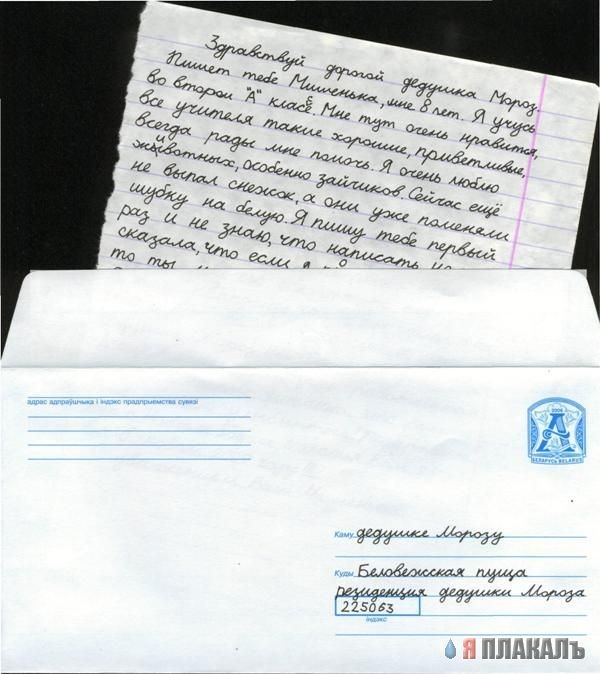 Здравствуй дорогой дедушка Мороз.
Пишет тебе Мишенька, мне 8 лет. Я учусь
во втором "А" класе. Мне тут очень нравится,
все учителя такие хорошие, приветливые,
всегда рады мне помочь. Я очень люблю
животных, особенно зайчиков. Сейчас ещё
не выпал снежок, а они уже поменяли
шубку на белую. Я пишу тебе первый
раз и не знаю, что написать
сказала, что если
то ты
адрас адпраўшчыка і індэкс прадпрыемства сувязі
2006
А
БЕЛАРУСЬ BELARUS
Каму дедушке Морозу
Куды Беловежсская пуща
резиденция дедушки Мороза
225063
індэкс
Я ПЛАКАЛЪ